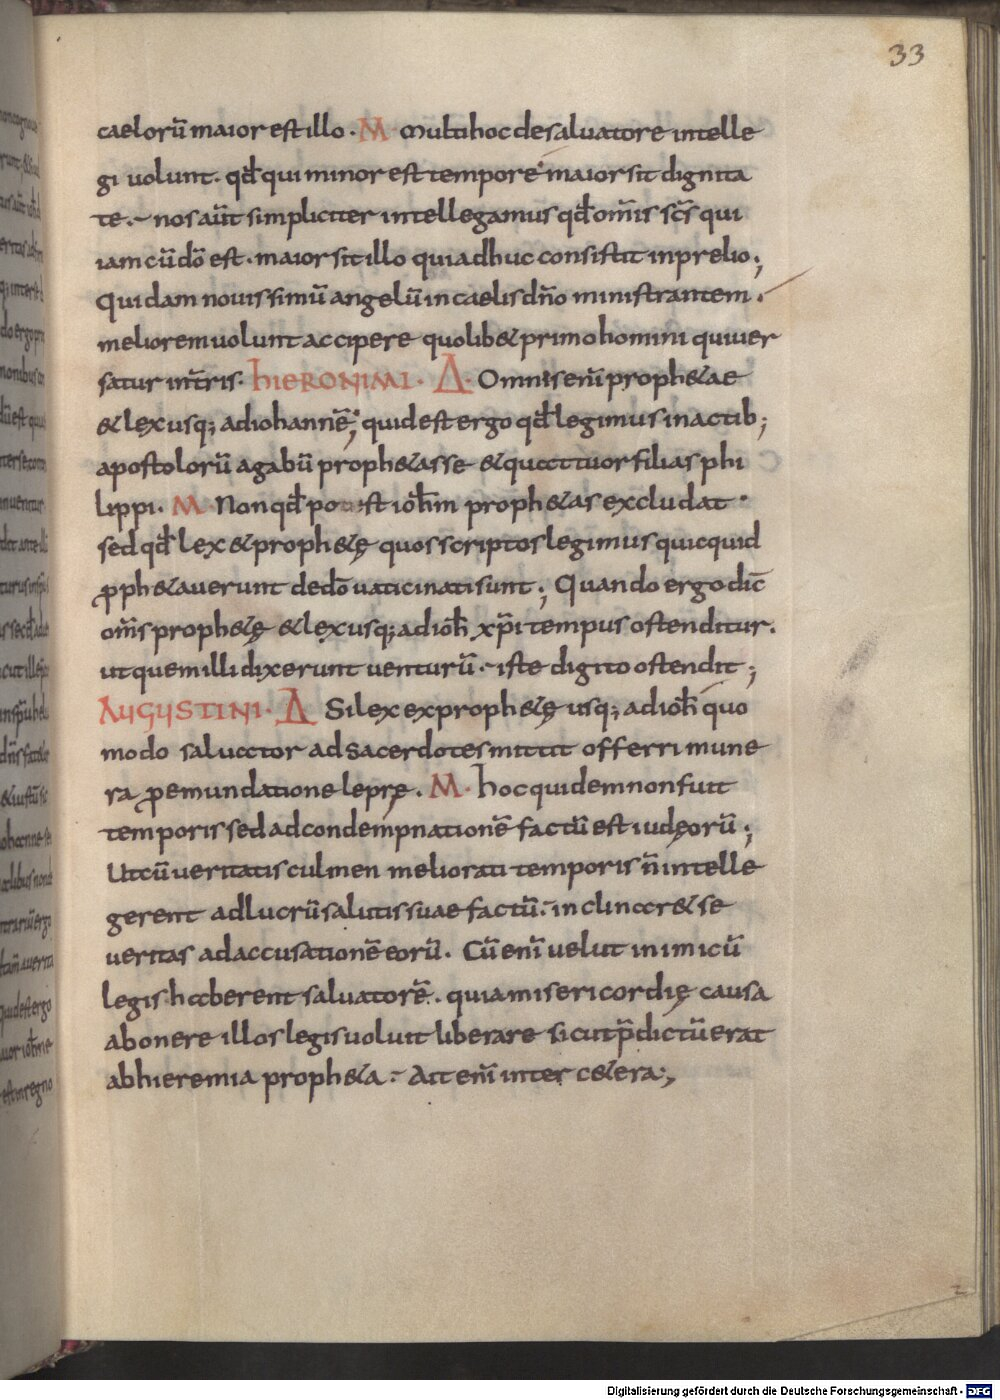 33
caelorū maior est illo · M · Multi hoc de saluatore intelle
gi uolunt · qđ qui minor est tempore maior sit dignita
te · nos aūt simpliciter intellegamus qđ om̄is sc̄s qui
iam cū dō est · maior sit illo qui adhuc consistit in prelio ;
Quidam nouissimū angelū in caelis dn̄o ministrantem ·
meliorem uolunt accipere quolib& primo homini qui uer
satur in t̄ris · hIERONIMI · Δ · Omnis enī proph&ae
& lex usq; ad iohannē ; quid est ergo qđ legimus in actib;
apostolorū agabū proph&asse & quattuor filias phi
lippi · M · Non qđ post ioh̄m proph&as excludat ·
sed qđ lex & proph&ę quos scriptos legimus quicquid
ꝓph&auerunt de dō uaticinati sunt ; Quando ergo dic̄
om̄s proph&ę & lex usq; ad ioh̄ xp̄i tempus ostenditur ·
ut quem illi dixerunt uenturū · iste digito ostendit ;
AUGUSTINI · Δ Si lex ex proph&ę usq; ad ioh̄ quo
modo saluator ad sacerdotes mittit offerri mune
ra ꝓ emundatione leprę · M · hoc quidem non fuit
temporis sed ad condempnationē factū est iudęorū ;
Ut cū ueritatis culmen meliorati temporis n̄ intelle
gerent ad lucrū salutis suae factū · inclinar& se
ueritas ad accusationē eorū · Cū enī uelut inimicū
legis haberent saluatorē · quia misericordię causa
ab onere illos legis uoluit liberare sicut p̄dictū erat
ab hieremia proph&a · Ait enī inter c&era ;
Digitalisierung gefördert durch die Deutsche Forschungsgemeinschaft - DFG